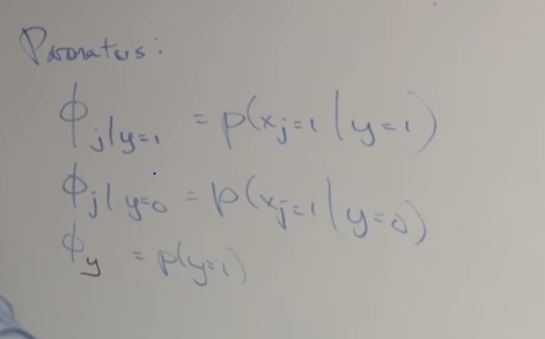 Parameters:
ϕ_{j|y=1} = p(x_j=1 | y=1)
ϕ_{j|y=0} = p(x_j=1 | y=0)
ϕ_y = p(y=1)